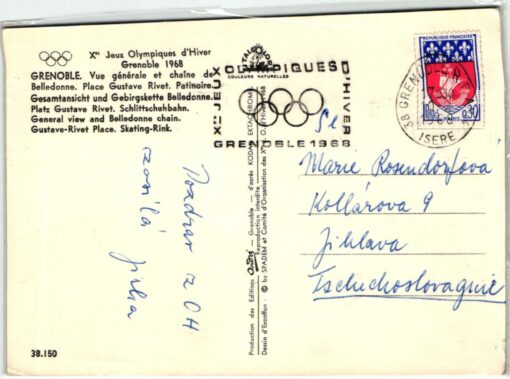 Xes Jeux Olympiques d'Hiver
Grenoble 1968
GRENOBLE. Vue générale et chaîne de
Belledonne. Place Gustave Rivet. Patinoire.
Gesamtansicht und Gebirgskette Belledonne.
Platz Gustav Rivet. Schlittschuhbahn.
General view and Belledonne chain.
Gustave-Rivet Place. Skating-Rink.
Pozdrav z OH
zasílá Jirka
38.150
Production des Editions André - Grenoble - d'après KODAK EKTACHROME
Reproduction interdite
Dessin d'Excoffon © by SPADEM et Comité d'Organisation des Xes J.O. d'Hiver 1968
COULEURS NATURELLES
Xes JEUX
OLYMPIQUES
D'HIVER
GRENOBLE 1968
REPUBLIQUE FRANCAISE
0,30
38 GRENOBLE
1968
ISERE
Sl.
Marie Rosendorfová
Kollárova 9
Jihlava
Tschechoslovaquie